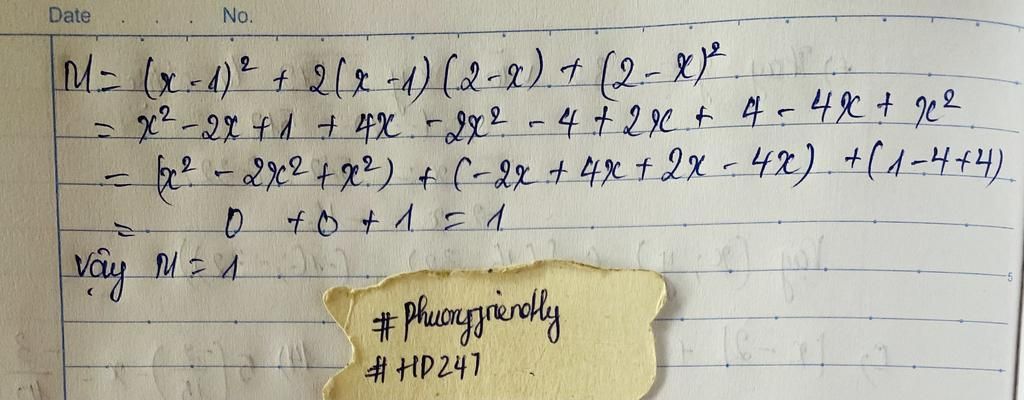 Date . . . No.
M = (x - 1)² + 2(x - 1)(2 - x) + (2 - x)²
= x² - 2x + 1 + 4x - 2x² - 4 + 2x + 4 - 4x + x²
= (x² - 2x² + x²) + (-2x + 4x + 2x - 4x) + (1 - 4 + 4)
= 0 + 0 + 1 = 1
Vậy M = 1
#HD247